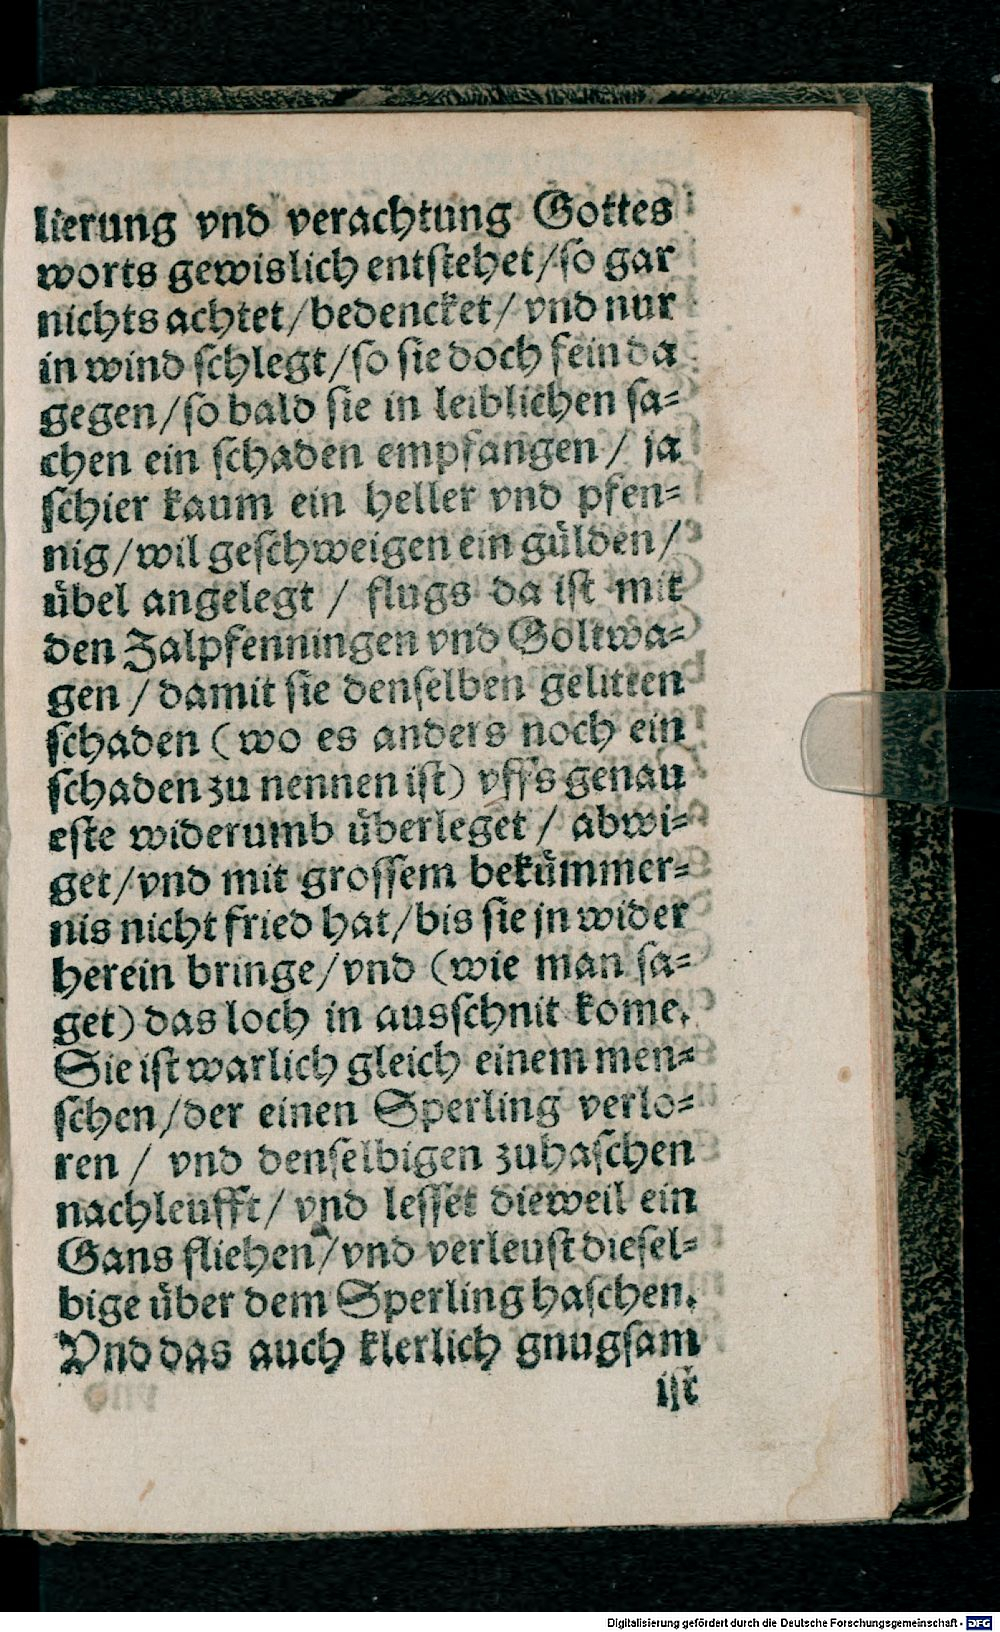 lierung vnd verachtung Gottes
worts gewislich entstehet/so gar
nichts achtet/bedencket/ vnd nur
in wind schlegt/so sie doch fein da
gegen/so bald sie in leiblichen sa⸗
chen ein schaden empfangen/ ja
schier kaum ein heller vnd pfen⸗
nig/wil geschweigen ein gülden/
übel angelegt / flugs da ist mit
den Zalpfenningen vnd Goltwa⸗
gen / damit sie denselben gelitten
schaden (wo es anders noch ein
schaden zu nennen ist) vffs genau
este widerumb überleget / abwi⸗
get/vnd mit grossem bekümmer⸗
nis nicht fried hat/bis sie jn wider
herein bringe/vnd (wie man sa⸗
get) das loch in ausschnit kome.
Sie ist warlich gleich einem men⸗
schen/der einen Sperling verlo⸗
ren / vnd denselbigen zuhaschen
nachleufft/ vnd lesset dieweil ein
Gans fliehen/vnd verleust diesel⸗
bige über dem Sperling haschen.
Vnd das auch klerlich gnugsam
ist
Digitalisierung gefördert durch die Deutsche Forschungsgemeinschaft - DFG